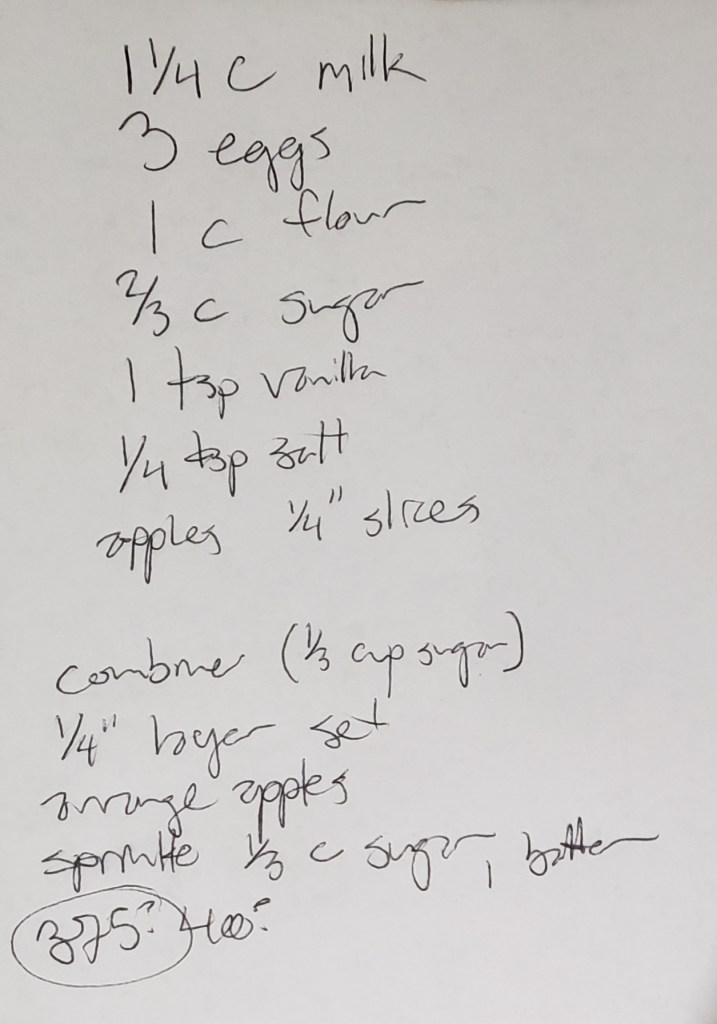 1 1/4 c milk
3 eggs
1 c flour
2/3 c sugar
1 tsp vanilla
1/4 tsp salt
apples 1/4" slices
combine (1/3 cup sugar)
1/4" layer set
arrange apples
sprinkle 1/3 c sugar, batter
375? 400?